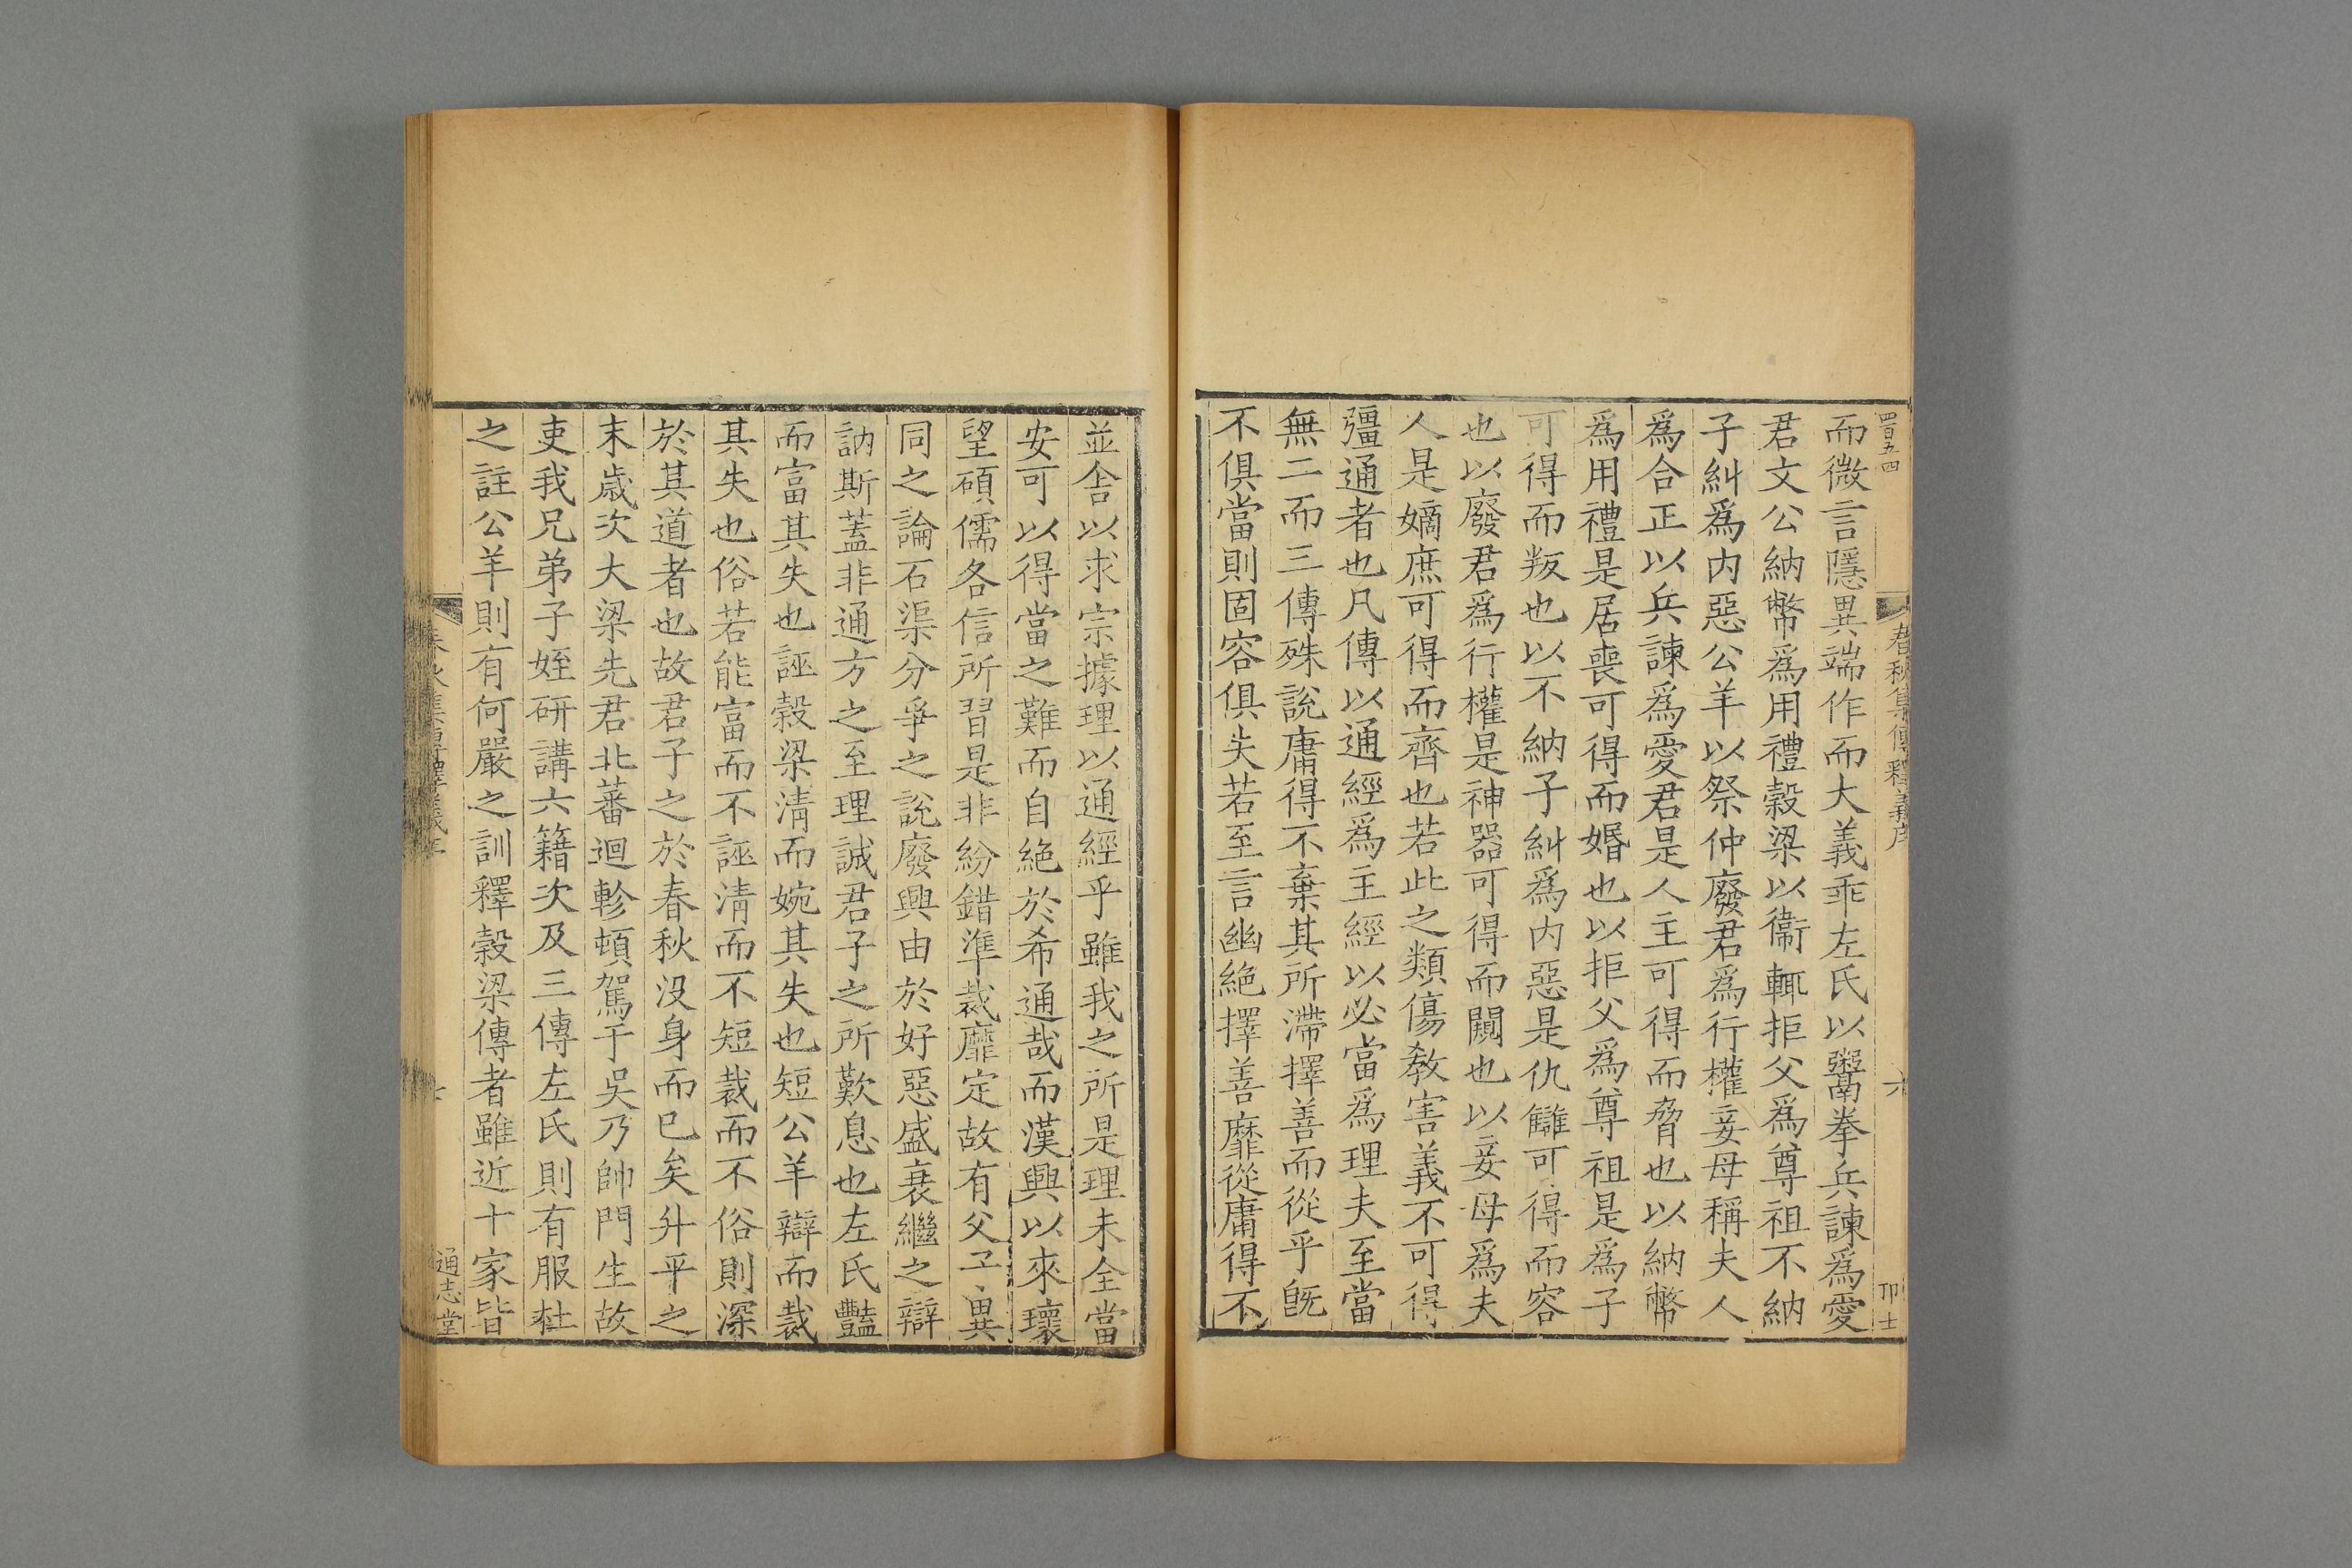 四百五四
春秋集傳釋義序
六
而微言隱異端作而大義乖左氏以鬻拳兵諫爲愛
君文公納幣爲用禮穀梁以衞輒拒父爲尊祖不納
子糾爲内惡公羊以祭仲廢君爲行權妾母稱夫人
爲合正以兵諫爲愛君是人主可得而脅也以納幣
爲用禮是居喪可得而婚也以拒父爲尊祖是爲子
可得而叛也以不納子糾爲内惡是仇讎可得而容
也以廢君爲行權是神器可得而闚也以妾母爲夫
人是嫡庶可得而齊也若此之類傷敎害義不可得
彊通者也凡傳以通經爲主經以必當爲理夫至當
無二而三傳殊說庸得不棄其所滯擇善而從乎旣
不俱當則固容俱失若至言幽絶擇善靡從庸得不
並舍以求宗據理以通經乎雖我之所是理未全當
安可以得當之難而自絶於希通哉而漢興以來瓌
望碩儒各信所習是非紛錯準裁靡定故有父子異
同之論石渠分爭之說廢興由於好惡盛衰繼之辯
訥斯蓋非通方之至理誠君子之所歎息也左氏豔
而富其失也誣穀梁淸而婉其失也短公羊辯而裁
其失也俗若能富而不誣淸而不短裁而不俗則深
於其道者也故君子之於春秋没身而已矣升平之
末歲次大梁先君北蕃迴軫頓駕于吳乃帥門生故
吏我兄弟子姪研講六籍次及三傳左氏則有服杜
之註公羊則有何嚴之訓釋穀梁傳者雖近十家皆
通志堂